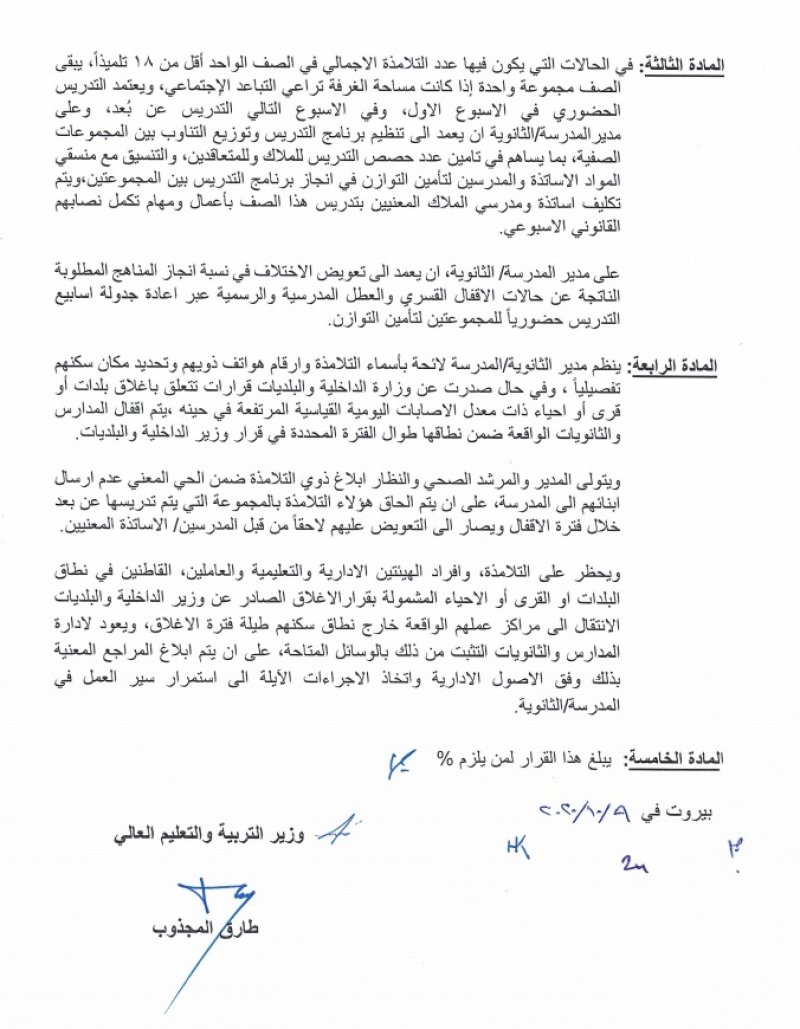 المادة الثالثة: في الحالات التي يكون فيها عدد التلامذة الاجمالي في الصف الواحد أقل من ١٨ تلميذاً، يبقى
الصف مجموعة واحدة إذا كانت مساحة الغرفة تراعي التباعد الإجتماعي، ويعتمد التدريس
الحضوري في الاسبوع الاول، وفي الاسبوع التالي التدريس عن بُعد، وعلى
مديرالمدرسة/الثانوية ان يعمد الى تنظيم برنامج التدريس وتوزيع التناوب بين المجموعات
الصفية، بما يساهم في تامين عدد حصص التدريس للملاك وللمتعاقدين، والتنسيق مع منسقي
المواد الاساتذة والمدرسين لتأمين التوازن في انجاز برنامج التدريس بين المجموعتين،ويتم
تكليف اساتذة ومدرسي الملاك المعنيين بتدريس هذا الصف بأعمال ومهام تكمل نصابهم
القانوني الاسبوعي.
على مدير المدرسة/ الثانوية، ان يعمد الى تعويض الاختلاف في نسبة انجاز المناهج المطلوبة
الناتجة عن حالات الاقفال القسري والعطل المدرسية والرسمية عبر اعادة جدولة اسابيع
التدريس حضورياً للمجموعتين لتأمين التوازن.
المادة الرابعة: ينظم مدير الثانوية/المدرسة لائحة بأسماء التلامذة وارقام هواتف ذويهم وتحديد مكان سكنهم
تفصيلياً ، وفي حال صدرت عن وزارة الداخلية والبلديات قرارات تتعلق باغلاق بلدات أو
قرى أو احياء ذات معدل الاصابات اليومية القياسية المرتفعة في حينه ،يتم اقفال المدارس
والثانويات الواقعة ضمن نطاقها طوال الفترة المحددة في قرار وزير الداخلية والبلديات.
ويتولى المدير والمرشد الصحي والنظار ابلاغ ذوي التلامذة ضمن الحي المعني عدم ارسال
ابنائهم الى المدرسة، على ان يتم الحاق هؤلاء التلامذة بالمجموعة التي يتم تدريسها عن بعد
خلال فترة الاقفال ويصار الى التعويض عليهم لاحقاً من قبل المدرسين/ الاساتذة المعنيين.
ويحظر على التلامذة، وافراد الهيئتين الادارية والتعليمية والعاملين، القاطنين في نطاق
البلدات او القرى أو الاحياء المشمولة بقرارالاغلاق الصادر عن وزير الداخلية والبلديات
الانتقال الى مراكز عملهم الواقعة خارج نطاق سكنهم طيلة فترة الاغلاق، ويعود لادارة
المدارس والثانويات التثبت من ذلك بالوسائل المتاحة، على ان يتم ابلاغ المراجع المعنية
بذلك وفق الاصول الادارية واتخاذ الاجراءات الآيلة الى استمرار سير العمل في
المدرسة/الثانوية.
المادة الخامسة: يبلغ هذا القرار لمن يلزم %
بيروت في ٢٠٢٠/١٠/٨
وزير التربية والتعليم العالي
طارق المجذوب